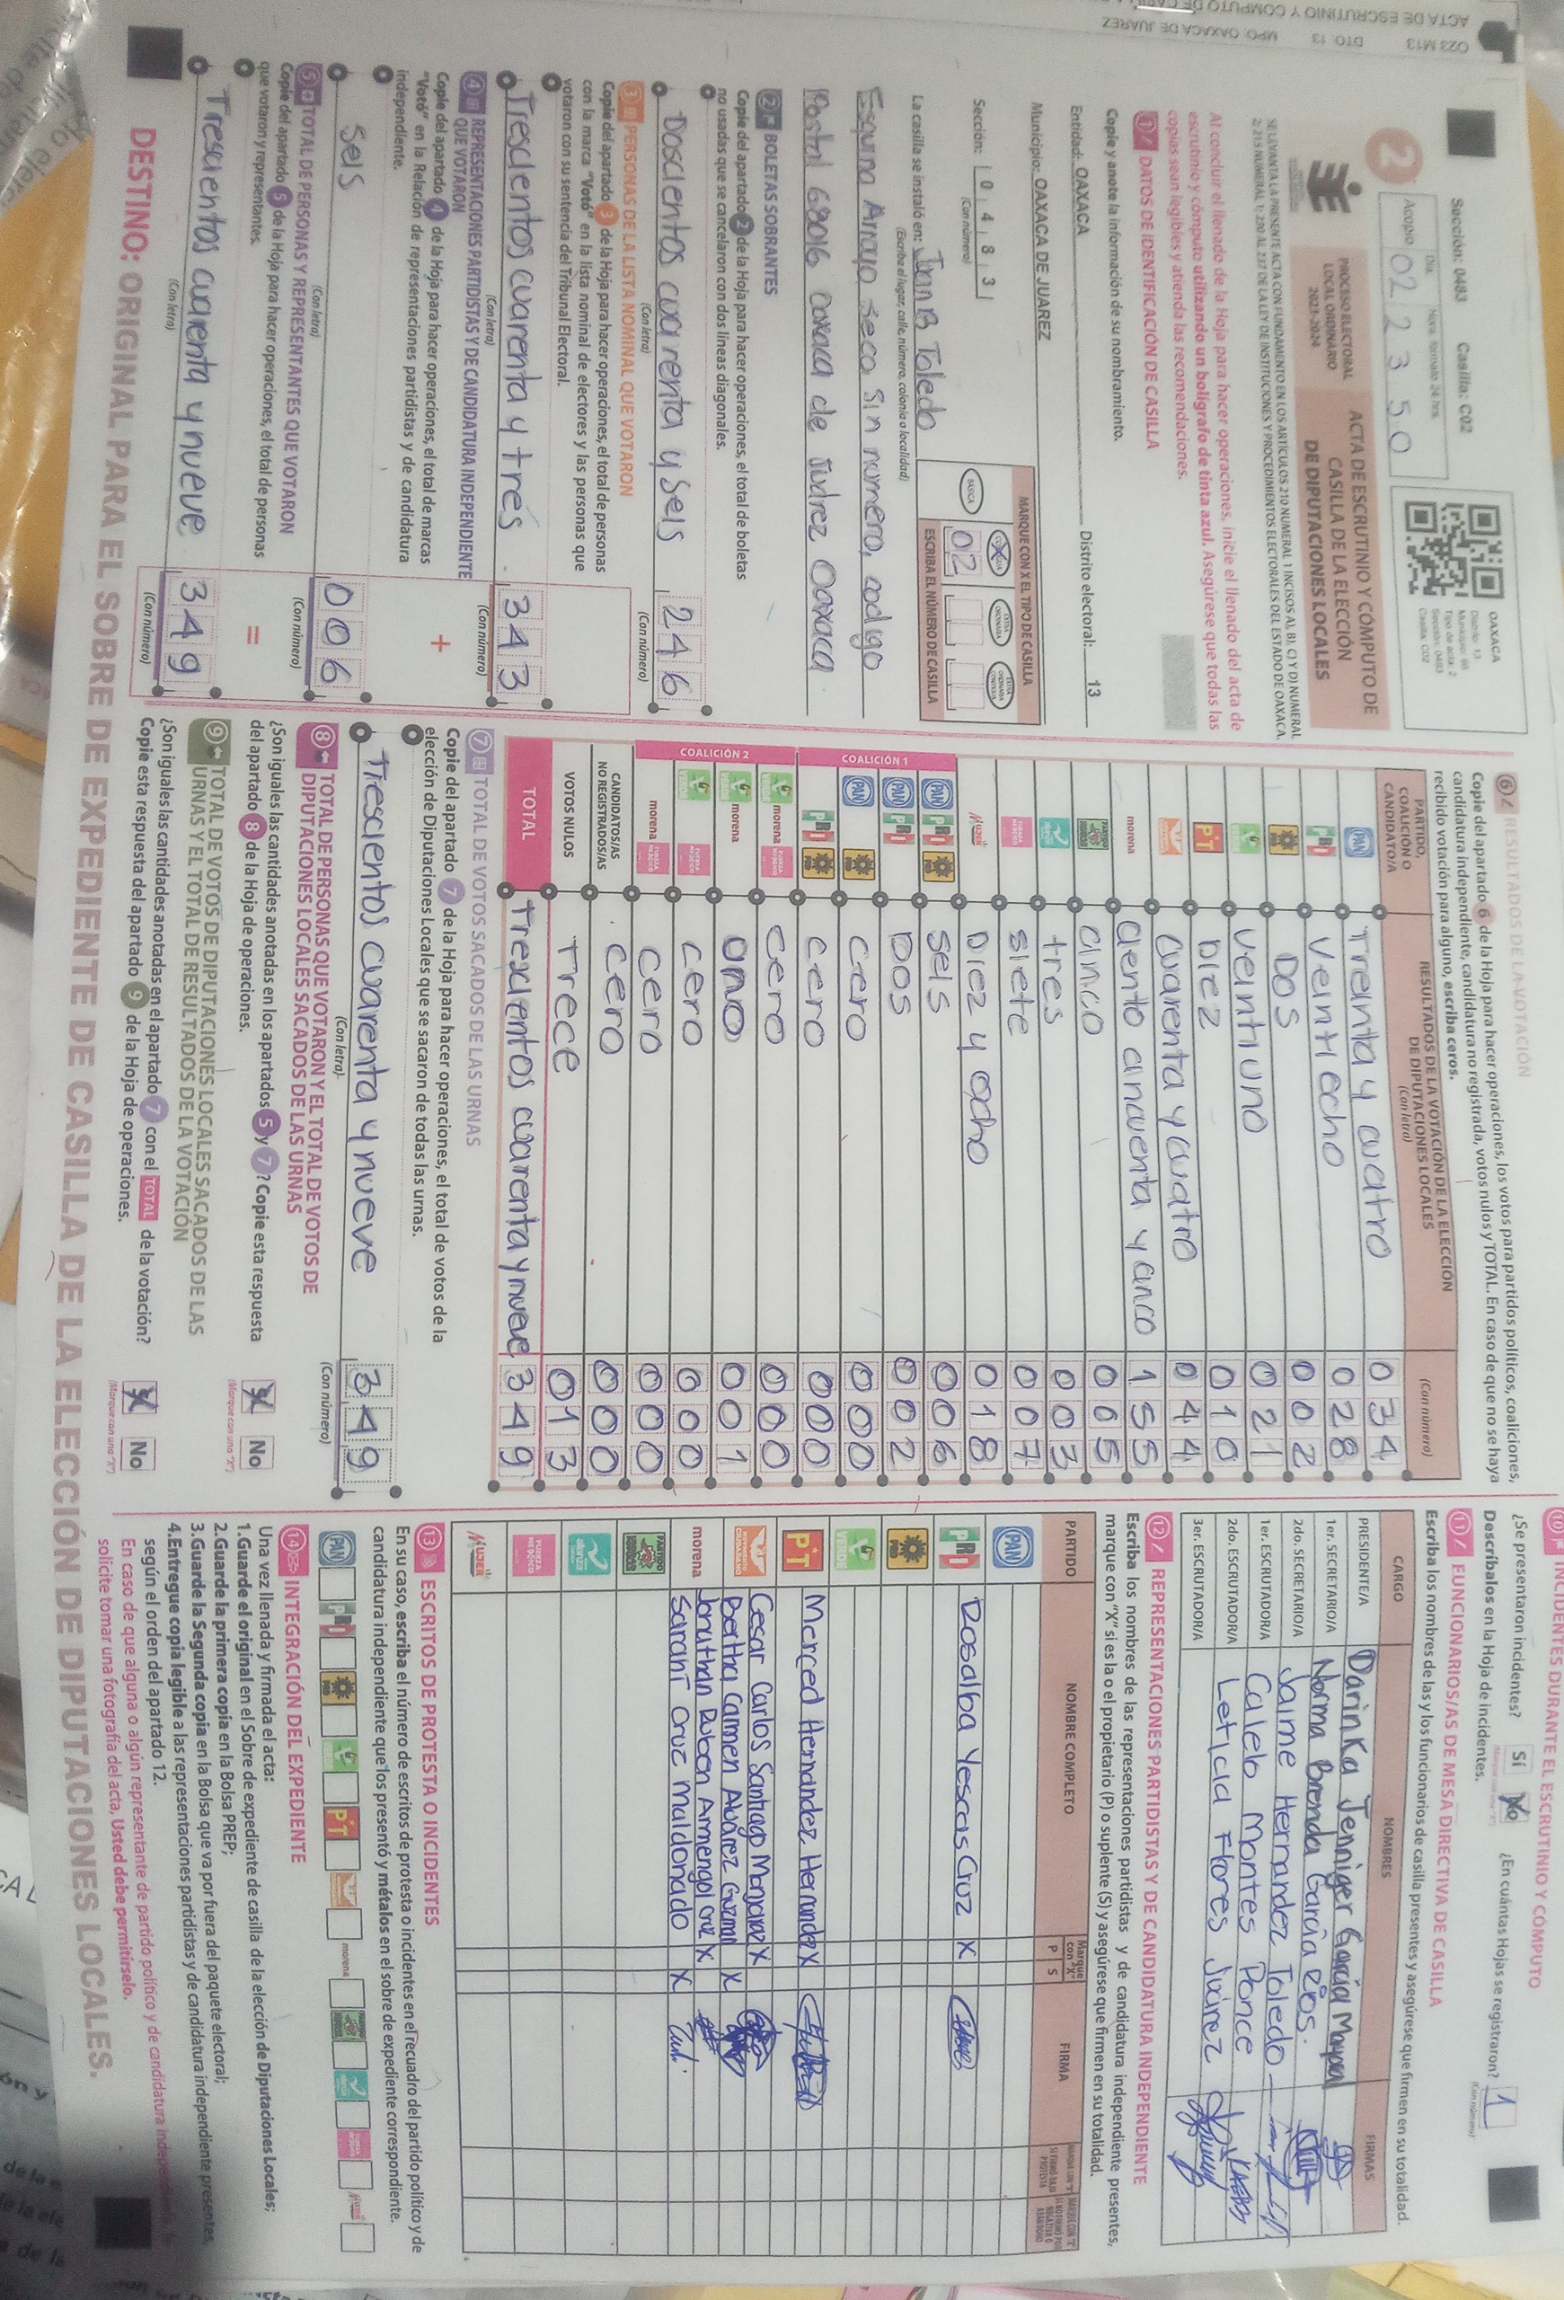 Sección: 0483 Casilla: C02
Día Hora formato 24 hrs.
Acopio 02 23 50
OAXACA
Distrito: 13
Tipo de acta: 2
Sección: 0483
Casilla: C02
2
PROCESO ELECTORAL
LOCAL ORDINARIO
2023-2024
ACTA DE ESCRUTINIO Y CÓMPUTO DE
CASILLA DE LA ELECCIÓN
DE DIPUTACIONES LOCALES
SE LEVANTA LA PRESENTE ACTA CON FUNDAMENTO EN LOS ARTÍCULOS 210 NUMERAL 1 INCISOS A), B), C) Y D) NUMERAL
2; 215 NUMERAL 1; 220 AL 237 DE LA LEY DE INSTITUCIONES Y PROCEDIMIENTOS ELECTORALES DEL ESTADO DE OAXACA.
Al concluir el llenado de la Hoja para hacer operaciones, inicie el llenado del acta de
escrutinio y cómputo utilizando un bolígrafo de tinta azul. Asegúrese que todas las
copias sean legibles y atienda las recomendaciones.
1 DATOS DE IDENTIFICACIÓN DE CASILLA
Copie y anote la información de su nombramiento.
Entidad: OAXACA Distrito electoral: 13
Municipio: OAXACA DE JUAREZ
Sección: 0 4 8 3
(Con número)
MARQUE CON X EL TIPO DE CASILLA
BÁSICA
ESCRIBA EL NÚMERO DE CASILLA
02
La casilla se instaló en: Juan B Toledo
(Escriba el lugar, calle, número, colonia o localidad)
Esquina Arroyo seco sin numero, codigo
Postal 68016 Oaxaca de Juárez Oaxaca
2 BOLETAS SOBRANTES
Copie del apartado 2 de la Hoja para hacer operaciones, el total de boletas
no usadas que se cancelaron con dos líneas diagonales.
Doscientos cuarenta y seis 246
(Con letra) (Con número)
3 PERSONAS DE LA LISTA NOMINAL QUE VOTARON
Copie del apartado 3 de la Hoja para hacer operaciones, el total de personas
con la marca "Votó" en la lista nominal de electores y las personas que
votaron con su sentencia del Tribunal Electoral.
Trescientos cuarenta y tres. 343
(Con letra) (Con número)
4 REPRESENTACIONES PARTIDISTAS Y DE CANDIDATURA INDEPENDIENTE
QUE VOTARON
Copie del apartado 4 de la Hoja para hacer operaciones, el total de marcas
"Votó" en la Relación de representaciones partidistas y de candidatura
independiente.
+
Seis 006
(Con letra) (Con número)
5 TOTAL DE PERSONAS Y REPRESENTANTES QUE VOTARON
Copie del apartado 5 de la Hoja para hacer operaciones, el total de personas
que votaron y representantes.
=
Trescientos cuarenta y nueve 349
(Con letra) (Con número)
6 RESULTADOS DE LA VOTACIÓN
Copie del apartado 6 de la Hoja para hacer operaciones, los votos para partidos políticos, coaliciones,
candidatura independiente, candidatura no registrada, votos nulos y TOTAL. En caso de que no se haya
recibido votación para alguno, escriba ceros.
PARTIDO,
COALICIÓN O
CANDIDATO/A
RESULTADOS DE LA VOTACIÓN DE LA ELECCIÓN
DE DIPUTACIONES LOCALES
(Con letra)
(Con número)
PAN Treinta y cuatro 034
PRI Veintiocho 028
PRD Dos 002
VERDE Veintiuno 021
PT Diez 010
Cuarenta y cuatro 044
morena ciento cincuenta y cinco 155
cinco 005
tres 003
siete 007
MUJER Diez y ocho 018
COALICIÓN 1
PAN PRI PRD Seis 006
PAN PRI Dos 002
PAN PRD cero 000
PRI PRD cero 000
COALICIÓN 2
VERDE morena cero 000
VERDE morena uno 001
VERDE cero 000
morena cero 000
CANDIDATOS/AS
NO REGISTRADOS/AS cero 000
VOTOS NULOS Trece 013
TOTAL Trescientos cuarenta y nueve 349
7 TOTAL DE VOTOS SACADOS DE LAS URNAS
Copie del apartado 7 de la Hoja para hacer operaciones, el total de votos de la
elección de Diputaciones Locales que se sacaron de todas las urnas.
Trescientos cuarenta y nueve 349
(Con letra) (Con número)
8 TOTAL DE PERSONAS QUE VOTARON Y EL TOTAL DE VOTOS DE
DIPUTACIONES LOCALES SACADOS DE LAS URNAS
¿Son iguales las cantidades anotadas en los apartados 5 y 7? Copie esta respuesta
del apartado 8 de la Hoja de operaciones.
No
(Marque con una "X")
9 TOTAL DE VOTOS DE DIPUTACIONES LOCALES SACADOS DE LAS
URNAS Y EL TOTAL DE RESULTADOS DE LA VOTACIÓN
¿Son iguales las cantidades anotadas en el apartado 7 con el TOTAL de la votación?
Copie esta respuesta del apartado 9 de la Hoja de operaciones.
No
(Marque con una "X")
10 INCIDENTES DURANTE EL ESCRUTINIO Y CÓMPUTO
¿Se presentaron incidentes? Sí No ¿En cuántas Hojas se registraron? 1
Descríbalos en la Hoja de incidentes.
11 FUNCIONARIOS/AS DE MESA DIRECTIVA DE CASILLA
Escriba los nombres de las y los funcionarios de casilla presentes y asegúrese que firmen en su totalidad.
CARGO NOMBRES FIRMAS
PRESIDENTE/A Darinka Jenniger García
1er. SECRETARIO/A Norma Brenda Garcia Rios.
2do. SECRETARIO/A Jaime Hernandez Toledo
1er. ESCRUTADOR/A Calelo Montes Ponce
2do. ESCRUTADOR/A Leticia Flores Juárez
3er. ESCRUTADOR/A
12 REPRESENTACIONES PARTIDISTAS Y DE CANDIDATURA INDEPENDIENTE
Escriba los nombres de las representaciones partidistas y de candidatura independiente presentes,
marque con "X" si es la o el propietario (P) o suplente (S) y asegúrese que firmen en su totalidad.
PARTIDO NOMBRE COMPLETO Marque con "X" P S FIRMA
PAN
PRI Rosalba Yescas Cruz X
PRD
VERDE
PT Merced Hernández Hernandez X
Cesar Carlos Santiago X
Bertha Carmen Alvárez Guzman X
morena Jonathan Ruben Armengol Cruz X
Sarani Cruz Maldonado X
MUJER
13 ESCRITOS DE PROTESTA O INCIDENTES
En su caso, escriba el número de escritos de protesta o incidentes en el recuadro del partido político y de
candidatura independiente que los presentó y métalos en el sobre de expediente correspondiente.
PAN PRI PRD VERDE PT morena
14 INTEGRACIÓN DEL EXPEDIENTE
Una vez llenada y firmada el acta:
1.Guarde el original en el Sobre de expediente de casilla de la elección de Diputaciones Locales;
2.Guarde la primera copia en la Bolsa PREP;
3.Guarde la Segunda copia en la Bolsa que va por fuera del paquete electoral;
4.Entregue copia legible a las representaciones partidistas y de candidatura independiente presentes
según el orden del apartado 12.
En caso de que alguna o algún representante de partido político y de candidatura
solicite tomar una fotografía del acta, Usted debe permitírselo.
DESTINO: ORIGINAL PARA EL SOBRE DE EXPEDIENTE DE CASILLA DE LA ELECCIÓN DE DIPUTACIONES LOCALES.
O23 M13 DTO 13 MPO OAXACA DE JUAREZ
ACTA DE ESCRUTINIO Y COMPUTO DE